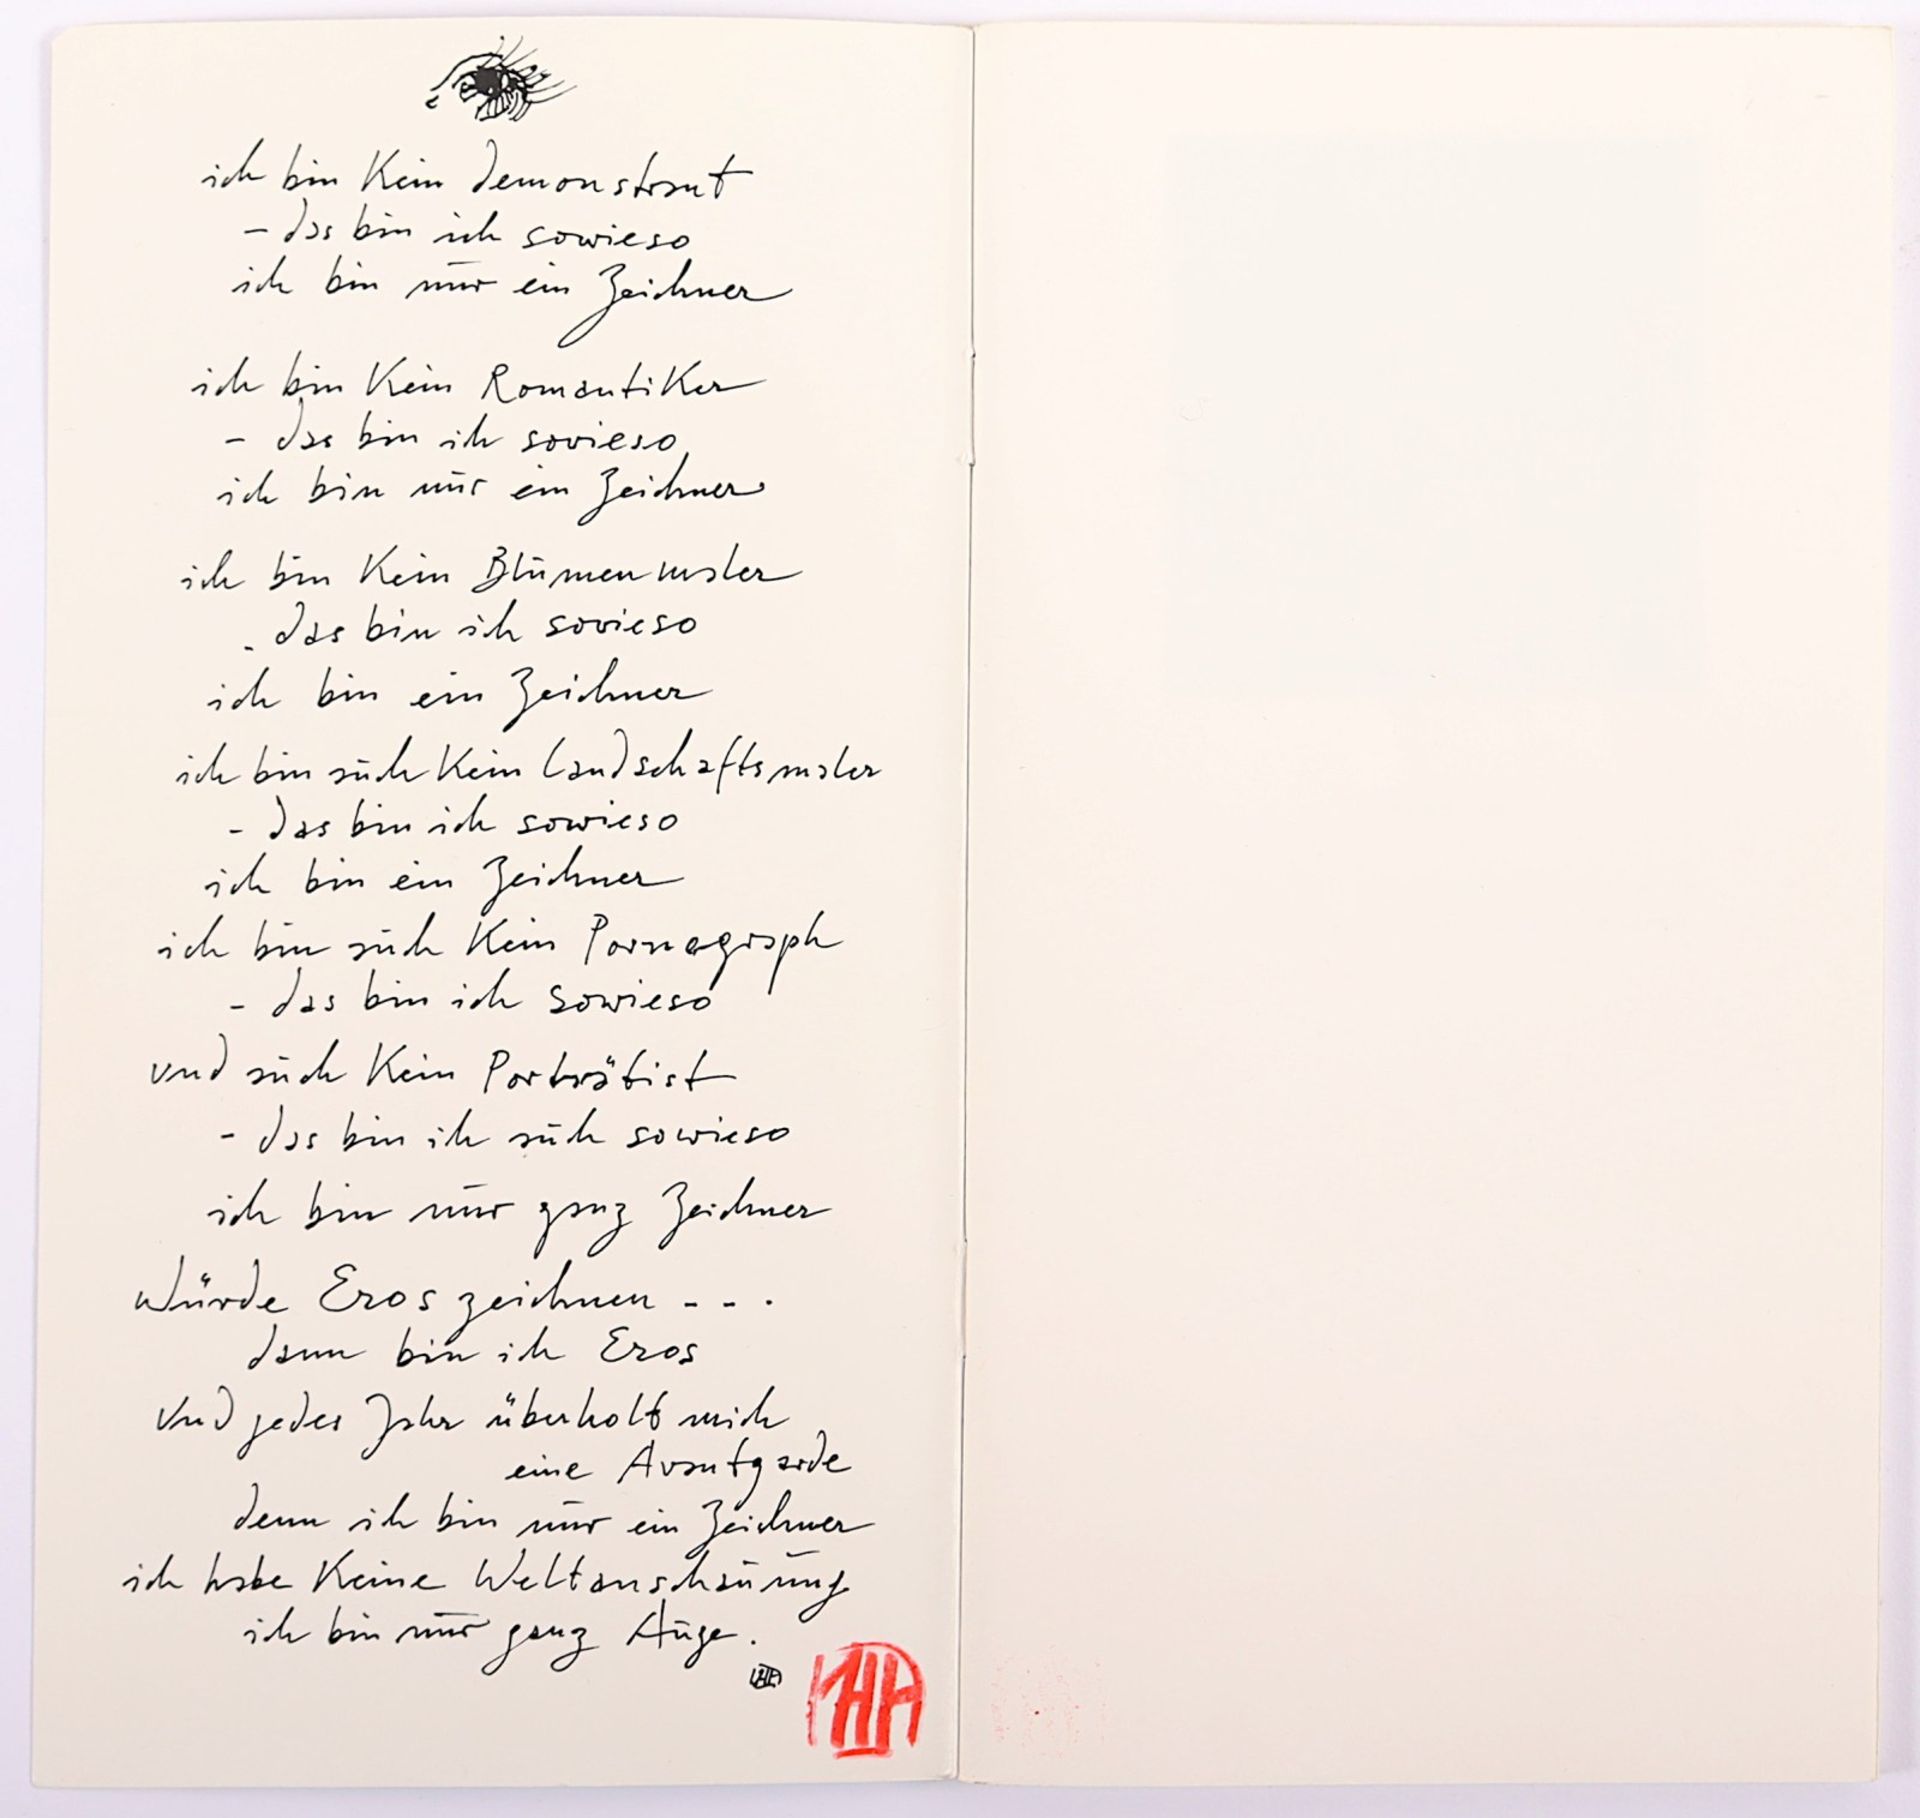 ich bin Kein Demonstrant
- das bin ich sowieso
ich bin nur ein Zeichner
ich bin Kein Romantiker
- das bin ich sowieso
ich bin nur ein Zeichner
ich bin Kein Blumenmaler
- das bin ich sowieso
ich bin ein Zeichner
ich bin auch Kein Landschaftsmaler
- das bin ich sowieso
ich bin ein Zeichner
ich bin auch Kein Pornograph
- das bin ich sowieso
und auch Kein Porträtist
- das bin ich auch sowieso
ich bin nur ganz Zeichner
würde Eros zeichnen - - .
dann bin ich Eros
und jedes Jahr überholt mich
eine Avantgarde
denn ich bin nur ein Zeichner
ich habe Keine Weltanschauung
ich bin nur ganz Auge.